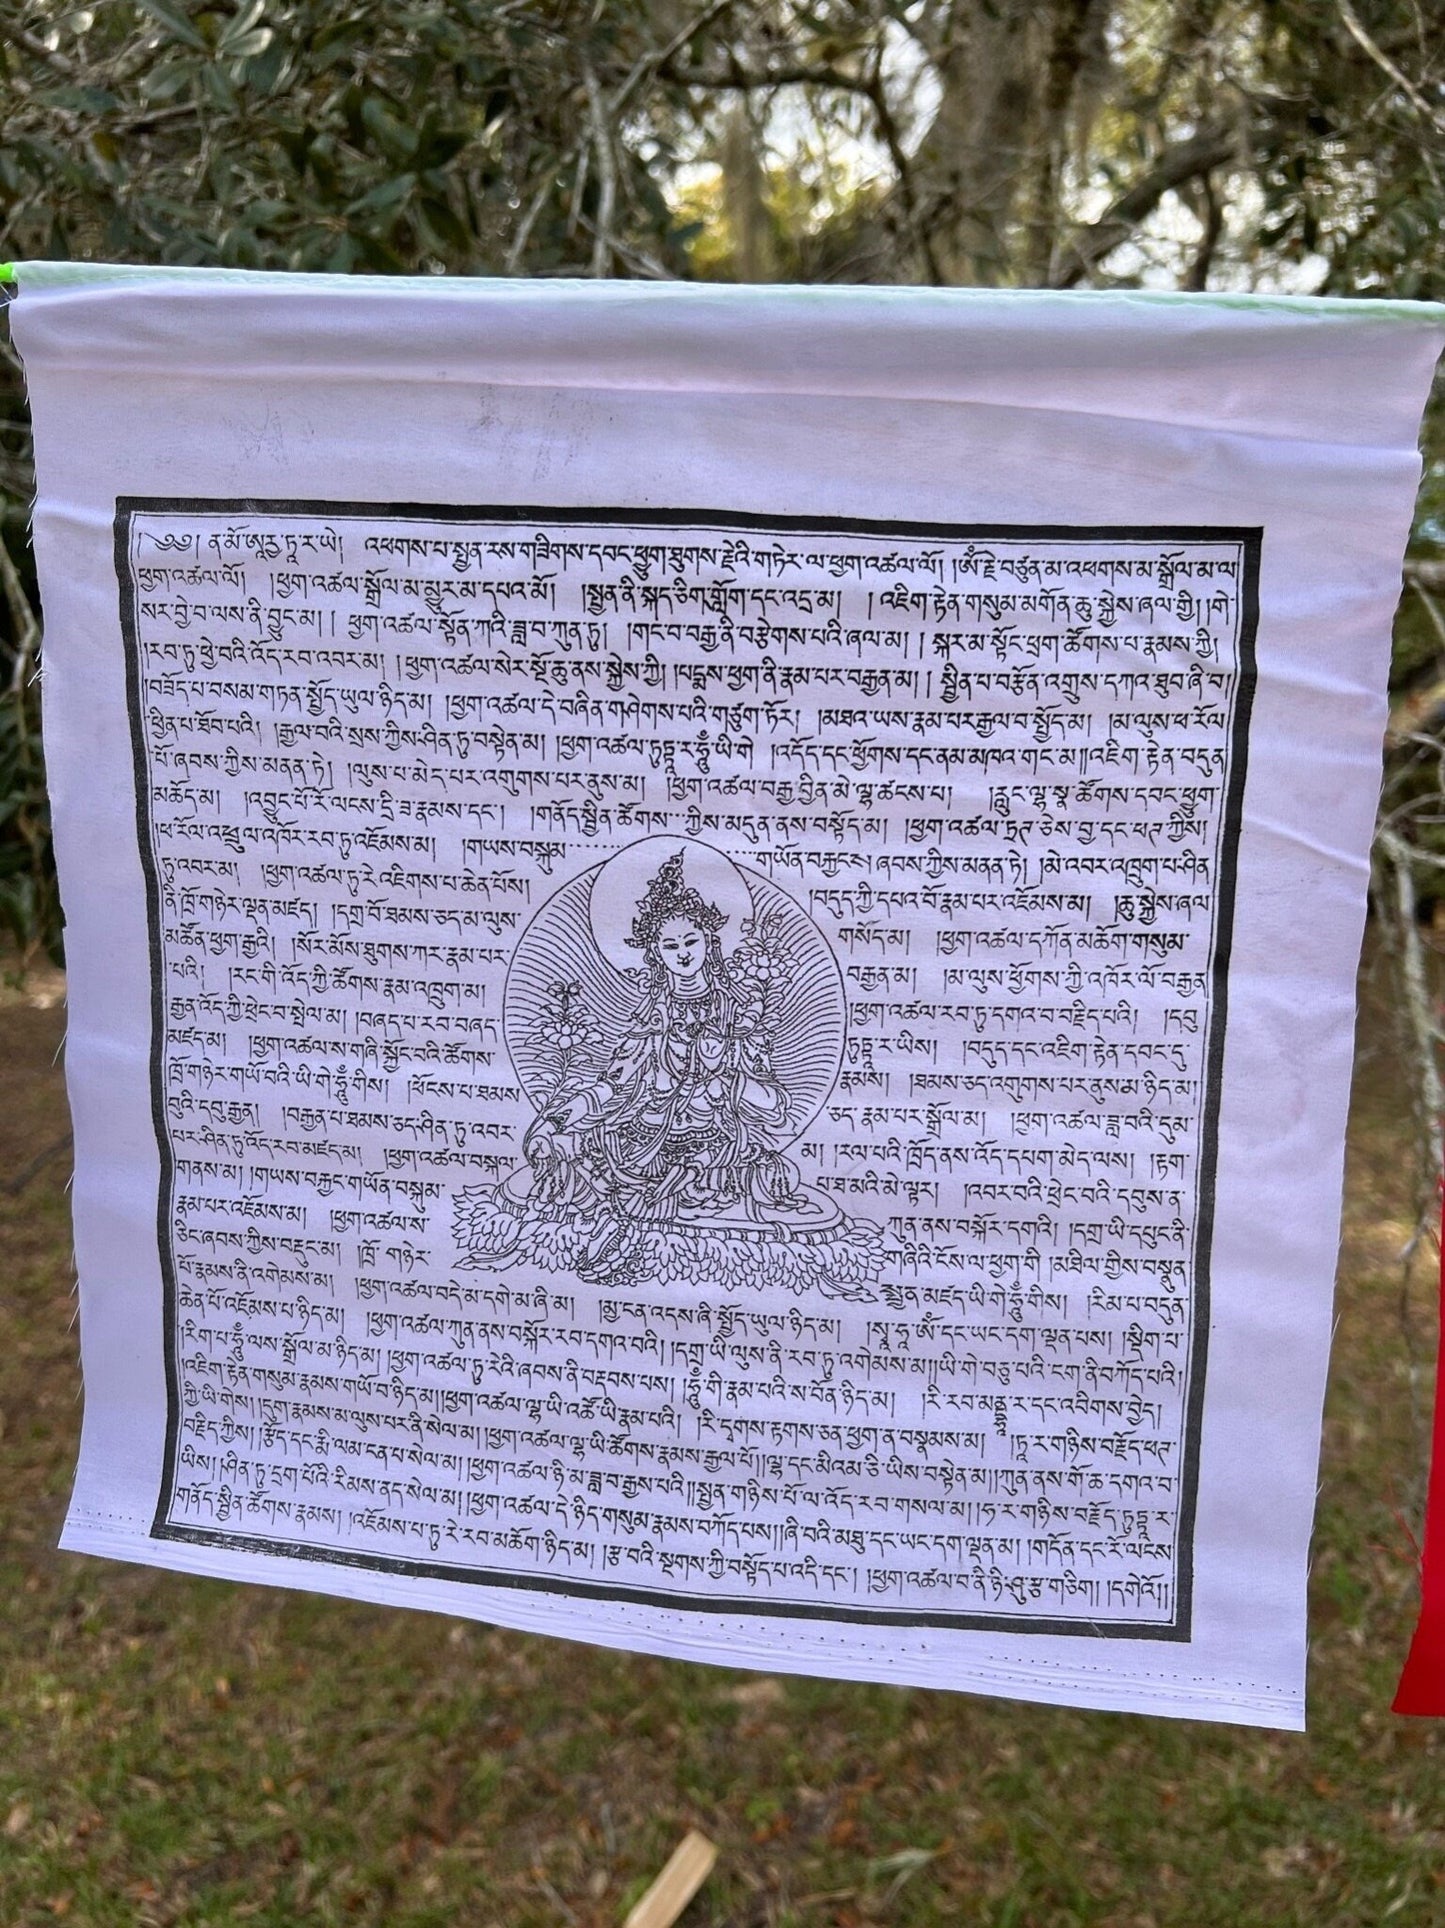 ༄༅། ན་མོ་ཨཱརྱ་ཏཱ་ར་ཡེ། འཕགས་པ་སྤྱན་རས་གཟིགས་དབང་ཕྱུག་ཐུགས་རྗེའི་གཏེར་ལ་ཕྱག་འཚལ་ལོ། །ཨོཾ་རྗེ་བཙུན་མ་འཕགས་མ་སྒྲོལ་མ་ལ
ཕྱག་འཚལ་ལོ། །ཕྱག་འཚལ་སྒྲོལ་མ་མྱུར་མ་དཔའ་མོ། །སྤྱན་ནི་སྐད་ཅིག་གློག་དང་འདྲ་མ། །འཇིག་རྟེན་གསུམ་མགོན་ཆུ་སྐྱེས་ཞལ་གྱི། །གེ་
སར་བྱེ་བ་ལས་ནི་བྱུང་མ། །ཕྱག་འཚལ་སྟོན་ཀའི་ཟླ་བ་ཀུན་ཏུ། །གང་བ་བརྒྱ་ནི་བརྩེགས་པའི་ཞལ་མ། །སྐར་མ་སྟོང་ཕྲག་ཚོགས་པ་རྣམས་ཀྱི།
།རབ་ཏུ་ཕྱེ་བའི་འོད་རབ་འབར་མ། །ཕྱག་འཚལ་སེར་སྔོ་ཆུ་ནས་སྐྱེས་ཀྱི། །པདྨས་ཕྱག་ནི་རྣམ་པར་བརྒྱན་མ། །སྦྱིན་པ་བརྩོན་འགྲུས་དཀའ་ཐུབ་ཞི་བ།
།བཟོད་པ་བསམ་གཏན་སྤྱོད་ཡུལ་ཉིད་མ། །ཕྱག་འཚལ་དེ་བཞིན་གཤེགས་པའི་གཙུག་ཏོར། །མཐའ་ཡས་རྣམ་པར་རྒྱལ་བ་སྤྱོད་མ། །མ་ལུས་ཕ་རོལ
ཕྱིན་པ་ཐོབ་པའི། །རྒྱལ་བའི་སྲས་ཀྱིས་ཤིན་ཏུ་བསྟེན་མ། །ཕྱག་འཚལ་ཏུཏྟཱ་ར་ཧཱུྃ་ཡི་གེ །འདོད་དང་ཕྱོགས་དང་ནམ་མཁའ་གང་མ། །འཇིག་རྟེན་བདུན
པོ་ཞབས་ཀྱིས་མནན་ཏེ། །ལུས་པ་མེད་པར་འགུགས་པར་ནུས་མ། །ཕྱག་འཚལ་བརྒྱ་བྱིན་མེ་ལྷ་ཚངས་པ། །རླུང་ལྷ་སྣ་ཚོགས་དབང་ཕྱུག་
མཆོད་མ། །འབྱུང་པོ་རོ་ལངས་དྲི་ཟ་རྣམས་དང་། །གནོད་སྦྱིན་ཚོགས་ཀྱིས་མདུན་ནས་བསྟོད་མ། །ཕྱག་འཚལ་ཏྲཊ་ཅེས་བྱ་དང་ཕཊ་ཀྱིས།
།ཕ་རོལ་འཕྲུལ་འཁོར་རབ་ཏུ་འཇོམས་མ། །གཡས་བསྐུམ་གཡོན་བརྐྱངས་ཞབས་ཀྱིས་མནན་ཏེ། །མེ་འབར་འཁྲུག་པ་ཤིན
ཏུ་འབར་མ། །ཕྱག་འཚལ་ཏུ་རེ་འཇིགས་པ་ཆེན་པོས། །བདུད་ཀྱི་དཔའ་བོ་རྣམ་པར་འཇོམས་མ། །ཆུ་སྐྱེས་ཞལ
ནི་ཁྲོ་གཉེར་ལྡན་མཛད། །དགྲ་བོ་ཐམས་ཅད་མ་ལུས་གསོད་མ། །ཕྱག་འཚལ་དཀོན་མཆོག་གསུམ་
མཚོན་ཕྱག་རྒྱའི། །སོར་མོས་ཐུགས་ཀར་རྣམ་པར་བརྒྱན་མ། །མ་ལུས་ཕྱོགས་ཀྱི་འཁོར་ལོ་བརྒྱན
པའི། །རང་གི་འོད་ཀྱི་ཚོགས་རྣམ་འཁྲུག་མ། །ཕྱག་འཚལ་རབ་ཏུ་དགའ་བ་བརྗིད་པའི། །དབུ
རྒྱན་འོད་ཀྱི་ཕྲེང་བ་སྤེལ་མ། །བཞད་པ་རབ་བཞད་ཏུཏྟཱ་ར་ཡིས། །བདུད་དང་འཇིག་རྟེན་དབང་དུ་
མཛད་མ། །ཕྱག་འཚལ་ས་གཞི་སྐྱོང་བའི་ཚོགས་རྣམས། །ཐམས་ཅད་འགུགས་པར་ནུས་མ་ཉིད་མ།
ཁྲོ་གཉེར་གཡོ་བའི་ཡི་གེ་ཧཱུྃ་གིས། །ཕོངས་པ་ཐམས་ཅད་རྣམ་པར་སྒྲོལ་མ། །ཕྱག་འཚལ་ཟླ་བའི་དུམ་
བུའི་དབུ་རྒྱན། །བརྒྱན་པ་ཐམས་ཅད་ཤིན་ཏུ་འབར་མ། །རལ་པའི་ཁྲོད་ནས་འོད་དཔག་མེད་ལས། །རྟག་
པར་ཤིན་ཏུ་འོད་རབ་མཛད་མ། །ཕྱག་འཚལ་བསྐལ་པ་ཐ་མའི་མེ་ལྟར། །འབར་བའི་ཕྲེང་བའི་དབུས་ན་
གནས་མ། །གཡས་བརྐྱང་གཡོན་བསྐུམ་ཀུན་ནས་བསྐོར་དགའི། །དགྲ་ཡི་དཔུང་ནི་
རྣམ་པར་འཇོམས་མ། །ཕྱག་འཚལ་ས་གཞིའི་ངོས་ལ་ཕྱག་གི །མཐིལ་གྱིས་བསྣུན་
ཅིང་ཞབས་ཀྱིས་བརྡུང་མ། །ཁྲོ་གཉེར་སྤྱན་མཛད་ཡི་གེ་ཧཱུྃ་གིས། །རིམ་པ་བདུན་
པོ་རྣམས་ནི་འགེམས་མ། །ཕྱག་འཚལ་བདེ་མ་དགེ་མ་ཞི་མ། །མྱ་ངན་འདས་ཞི་སྤྱོད་ཡུལ་ཉིད་མ། །སྭཱ་ཧཱ་ཨོཾ་དང་ཡང་དག་ལྡན་པས། །སྡིག་པ་
ཆེན་པོ་འཇོམས་པ་ཉིད་མ། །ཕྱག་འཚལ་ཀུན་ནས་བསྐོར་རབ་དགའ་བའི། །དགྲ་ཡི་ལུས་ནི་རབ་ཏུ་འགེམས་མ། །ཡི་གེ་བཅུ་པའི་ངག་ནི་བཀོད་པའི།
།རིག་པ་ཧཱུྃ་ལས་སྒྲོལ་མ་ཉིད་མ། །ཕྱག་འཚལ་ཏུ་རེའི་ཞབས་ནི་བརྡབས་པས། །ཧཱུྃ་གི་རྣམ་པའི་ས་བོན་ཉིད་མ། །རི་རབ་མནྡྷཱ་ར་དང་འབིགས་བྱེད།
།འཇིག་རྟེན་གསུམ་རྣམས་གཡོ་བ་ཉིད་མ། །ཕྱག་འཚལ་ལྷ་ཡི་འཚོ་ཡི་རྣམ་པའི། །རི་དྭགས་རྟགས་ཅན་ཕྱག་ན་བསྣམས་མ། །ཏཱ་ར་གཉིས་བརྗོད་ཕཊ་
ཀྱི་ཡི་གེས། །དུག་རྣམས་མ་ལུས་པར་ནི་སེལ་མ། །ཕྱག་འཚལ་ལྷ་ཡི་ཚོགས་རྣམས་རྒྱལ་པོ། །ལྷ་དང་མིའམ་ཅི་ཡིས་བསྟེན་མ། །ཀུན་ནས་གོ་ཆ་དགའ་བ་
བརྗིད་ཀྱིས། །རྩོད་དང་རྨི་ལམ་ངན་པ་སེལ་མ། །ཕྱག་འཚལ་ཉི་མ་ཟླ་བ་རྒྱས་པའི། །སྤྱན་གཉིས་པོ་ལ་འོད་རབ་གསལ་མ། །ཧ་ར་གཉིས་བརྗོད་ཏུཏྟཱ་ར་
ཡིས། །ཤིན་ཏུ་དྲག་པོའི་རིམས་ནད་སེལ་མ། །ཕྱག་འཚལ་དེ་ཉིད་གསུམ་རྣམས་བཀོད་པས། །ཞི་བའི་མཐུ་དང་ཡང་དག་ལྡན་མ། །གདོན་དང་རོ་ལངས
གནོད་སྦྱིན་ཚོགས་རྣམས། །འཇོམས་པ་ཏུ་རེ་རབ་མཆོག་ཉིད་མ། །རྩ་བའི་སྔགས་ཀྱི་བསྟོད་པ་འདི་དང་། །ཕྱག་འཚལ་བ་ནི་ཉི་ཤུ་རྩ་གཅིག། །དགེའོ།།